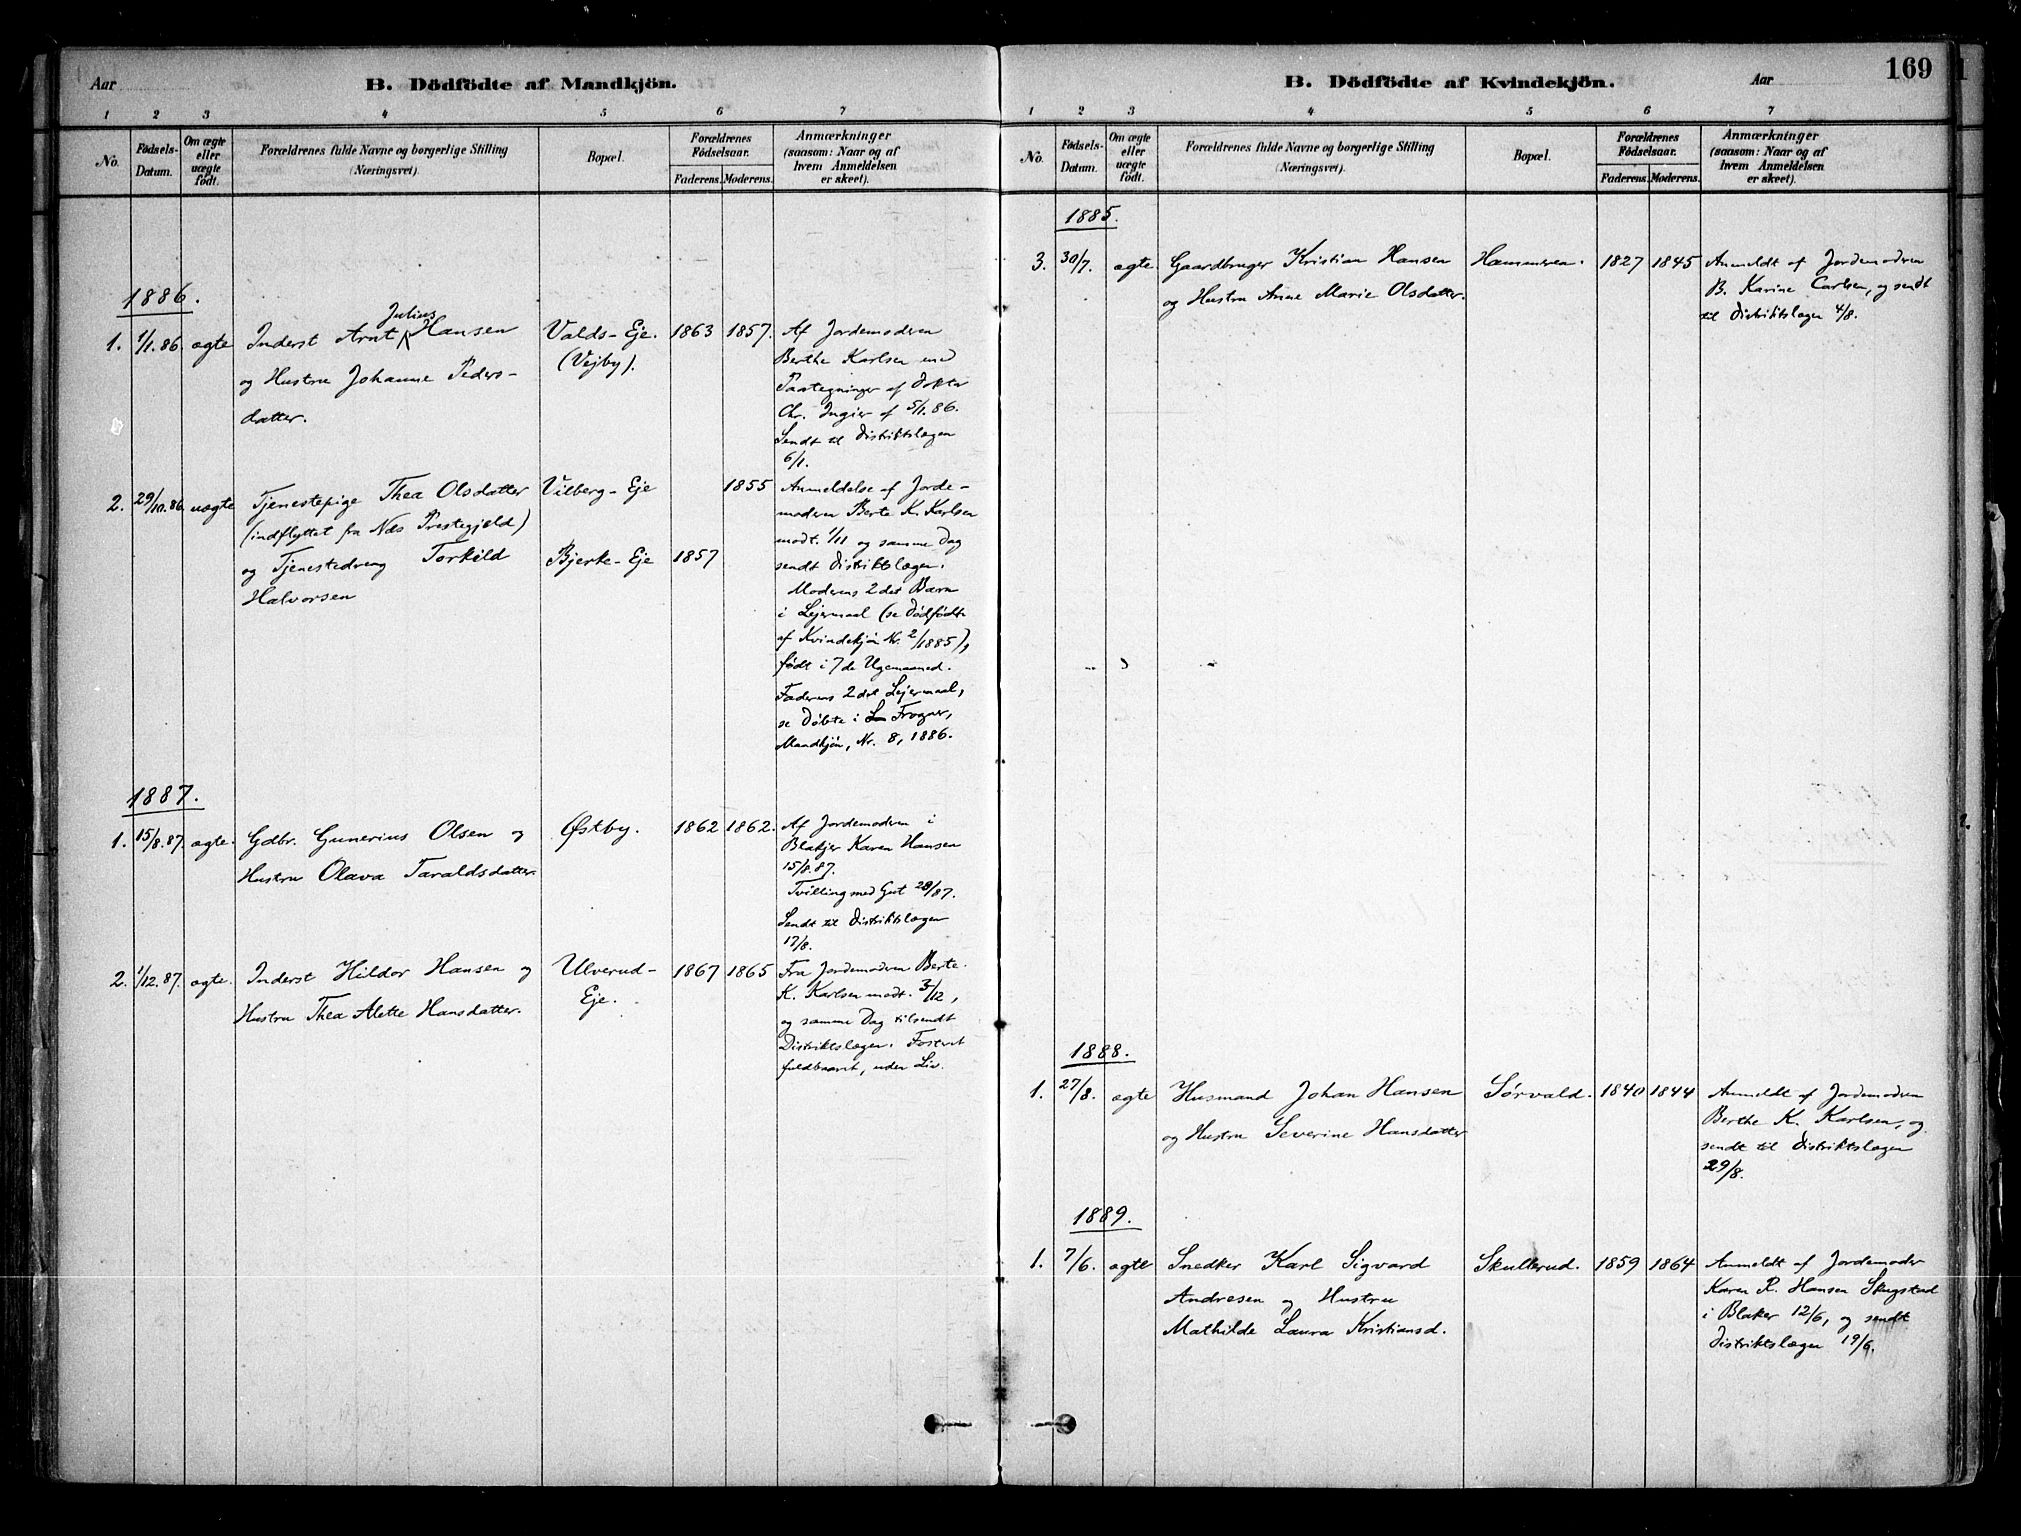 Aar
B. Dödfödte af Mandkjön.
1 2 3 4 5 6 7
No.
Födsels-
Datum.
Om ægte
eller
uægte
födt.
Forældrenes fulde Navne og borgerlige Stilling
(Næringsvei).
Bopæl.
Forældrenes
Födselsaar.
Faderens. Moderens.
Anmærkninger
(saasom: Naar og af
hvem Anmeldelsen
er skeet).
1886.
1. 1/1.86. ægte
Inderst Arnt Julius Hansen
og Hustru Johanne Peders-
datter.
Valds-Eje.
(Vejby).
1863 1857.
Af Jordemoderen
Berthe Karlsen med
Paategninger af Doktor
Chr. Ingier af 5/1.86.
Sendt til Distriktslægen
6/1.
2. 29/10.86. uægte
Tjenestepige Thea Olsdatter
(indflyttet fra Næs Prestegjeld)
og Tjenestedreng Torkild
Halvorsen
Vilberg-Eje
Bjerke-Eje
1857
1855
Anmeldelse af Jorde-
moderen Berte K. Karlsen
modt. 1/11 og samme Dag
sendt Distriktslægen.
Moderens 2det Barn
i Lejermaal (se Dødfødte
af Kvindekjøn Nr. 2/1885),
født i 7de Ugemaaned.
Faderens 2det Lejermaal,
se Døbte i Frogner,
Mandkjøn, Nr. 8, 1886.
1887.
1. 15/8.87. ægte.
Gdbr. Gunerius Olsen og
Hustru Olava Taraldsdatter.
Østby.
1862 1862.
Af Jordemoderen i
Blakjer Karen Hansen
15/8.87.
Tvilling med Gut 28/87.
Sendt til Distriktslægen
17/8.
2. 1/12.87. ægte.
Inderst Hildor Hansen og
Hustru Thea Alette Hansdatter.
Ulverud-
Eje.
1867 1865
Fra Jordemoderen Berte
K. Karlsen modt. 3/12,
og samme Dag tilsendt
Distriktslægen. Fosteret
fuldbaaret, uden Liv.
B. Dödfödte af Kvindekjön.
Aar
169
1 2 3 4 5 6 7
No.
Födsels-
Datum.
Om ægte
eller
uægte
födt.
Forældrenes fulde Navne og borgerlige Stilling
(Næringsvei).
Bopæl.
Forældrenes
Födselsaar.
Faderens. Moderens.
Anmærkninger
(saasom: Naar og af
hvem Anmeldelsen
er skeet).
1885.
3. 30/7. ægte.
Gaardbruger Kristian Hansen
og Hustru Anne Marie Olsdatter.
Hammeren.
1827 1845
Anmeldt af Jordemoderen
B. Karine Carlsen, og sendt
til Distriktslægen 4/8.
1888.
1. 27/8. ægte
Husmand Johan Hansen
og Hustru Severine Hansdatter
Sørvald.
1840 1844
Anmeldt af Jordemoderen
Berthe K. Karlsen, og
sendt til Distriktslægen
29/8.
1889.
1. 7/6. ægte
Snedker Karl Sigvard
Andresen og Hustru
Mathilde Laura Kristiansd.
Skullerud.
1859 1864
Anmeldt af Jordemoder
Karen R. Hansen Skugstad
i Blaker 12/6, og sendt
Distriktslægen 19/6.